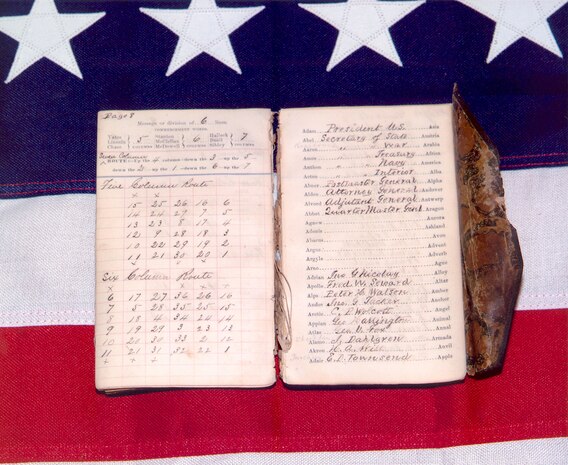 Page 8
Message or division of 6 lines.
COMMENCEMENT WORDS.
Yates Stanton Halleck
Lincoln 5 McClellan 6 Buell 7
Chase McDowell Sibley
COLUMNS COLUMNS COLUMNS
Seven Column
ROUTE Up the 4 column down the 3 up the 5
down the 2 up the 1 down the 6 up the 7
Five Column Route
15 25 26 16 6
14 24 27 7 5
13 23 8 17 4
12 9 28 18 3
10 22 29 19 2
11 21 30 20 1
Six Column Route
6 17 27 36 26 16
7 5 28 35 25 15
8 18 4 34 24 14
9 19 29 3 23 13
10 20 30 33 2 12
11 21 31 32 22 1
Adam President U.S. Asia
Abel Secretary of State Austria
" " War Arabia
" " Treasury Africa
" " Navy America
" " Interior Alba
Abner Postmaster General Alpha
Attorney General Andover
Adjutant General Antwerp
Quarter Master Genl Aragon
Agnew Aurora
Adonis Ashland
Adams Avon
Argus Advent
Argyle Adverb
Arno Ague
Adrian Jno G Nicolay Alley
Apollo Fred W. Seward Altar
Alps Peter H Watson Amber
Jno G. Tucker Anchor
C. P. Wolcott Angel
Appian Geo Harrington Animal
Atlas Gus V. Fox Annal
J. Dahlgren Armada
H. A. Wise Anvil
Asia E. D. Townsend Apple